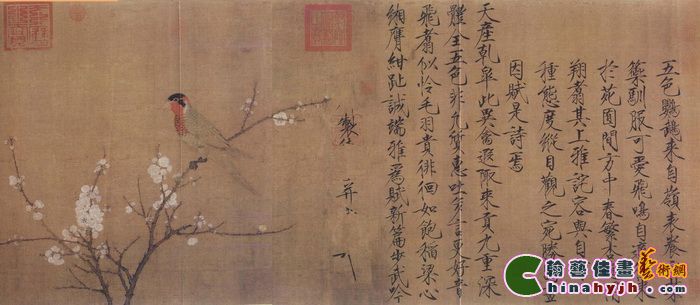 五色鸚鵡來自嶺表養之禁
籞馴服可愛飛鳴自適
於苑囿間方中春繁杏
翔翥其上雅詫容與自
種態度縱目觀之宛勝
因賦是詩焉
天產乾皋此異禽遐陬來貢九重深
體全五色非凡質惠吐多言更好音
飛翥似憐毛羽貴徘徊如飽稻粱心
緗膺紺趾誠端雅為賦新篇步武吟
製
并書
翰藝佳畫藝術網
hinahyjh.com